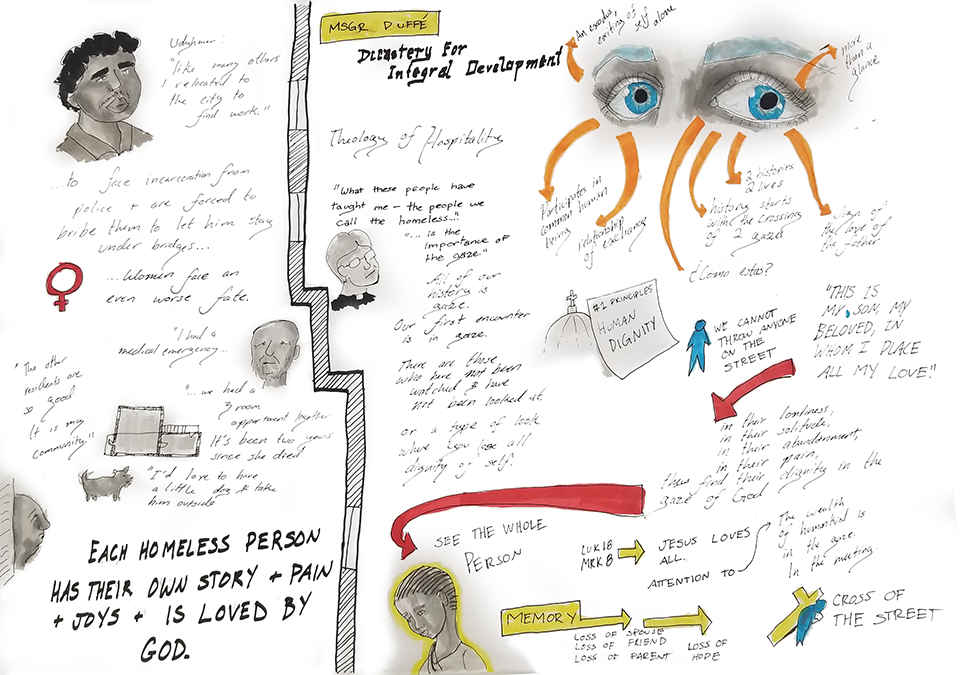 "like many others
I relocated to
the city to
find work."
...to face incarceration from
police + are forced to
bribe them to let him stay
under bridges...
...Women face an
even worse fate.
"I had a
medical emergency...
"... we had a
3 room
appartment together
It's been two years
since she died
"The other
residents are
so good
It is my
community."
"I'd love to have
a little dog, to take
him outside"
EACH HOMELESS PERSON
HAS THEIR OWN STORY + PAIN
+ JOYS + IS LOVED BY
GOD.
MSGR DUFFÉ
Dicastery For
Integral Development
Theology of Hospitality
"What these people have
taught me – the people we
call the homeless..."
"... is the
importance of
the gaze"
All of our
history is
gaze.
Our first encounter
is in gaze.
There are those
who have not been
watched & have
not been looked at.
or a type of look
where you lose all
dignity of self.
An exodus,
exiting of
self alone
more
than a
glance
Participates in
common human
being
relationship
of exchange
¿Como estas?
history starts
with the crossing
of 2 gazes
2 histories
2 lives
sign of
the love of
the father
#1 PRINCIPLES
HUMAN
DIGNITY
WE CANNOT
THROW ANYONE
ON THE
STREET
"THIS IS
MY, SON, MY
BELOVED, IN
WHOM I PLACE
ALL MY LOVE."
in their lonliness,
in their solitude,
in their abandonment,
in their pain,
thus find their dignity in the
gaze of God
SEE THE WHOLE
PERSON
LUK 18
MRK 8
JESUS LOVES
ALL.
ATTENTION TO
The wealth
of humankind is
in the gaze.
In the meeting.
MEMORY
LOSS OF SPOUSE
LOSS OF FRIEND
LOSS OF PARENT
LOSS OF
HOPE
CROSS OF
THE STREET